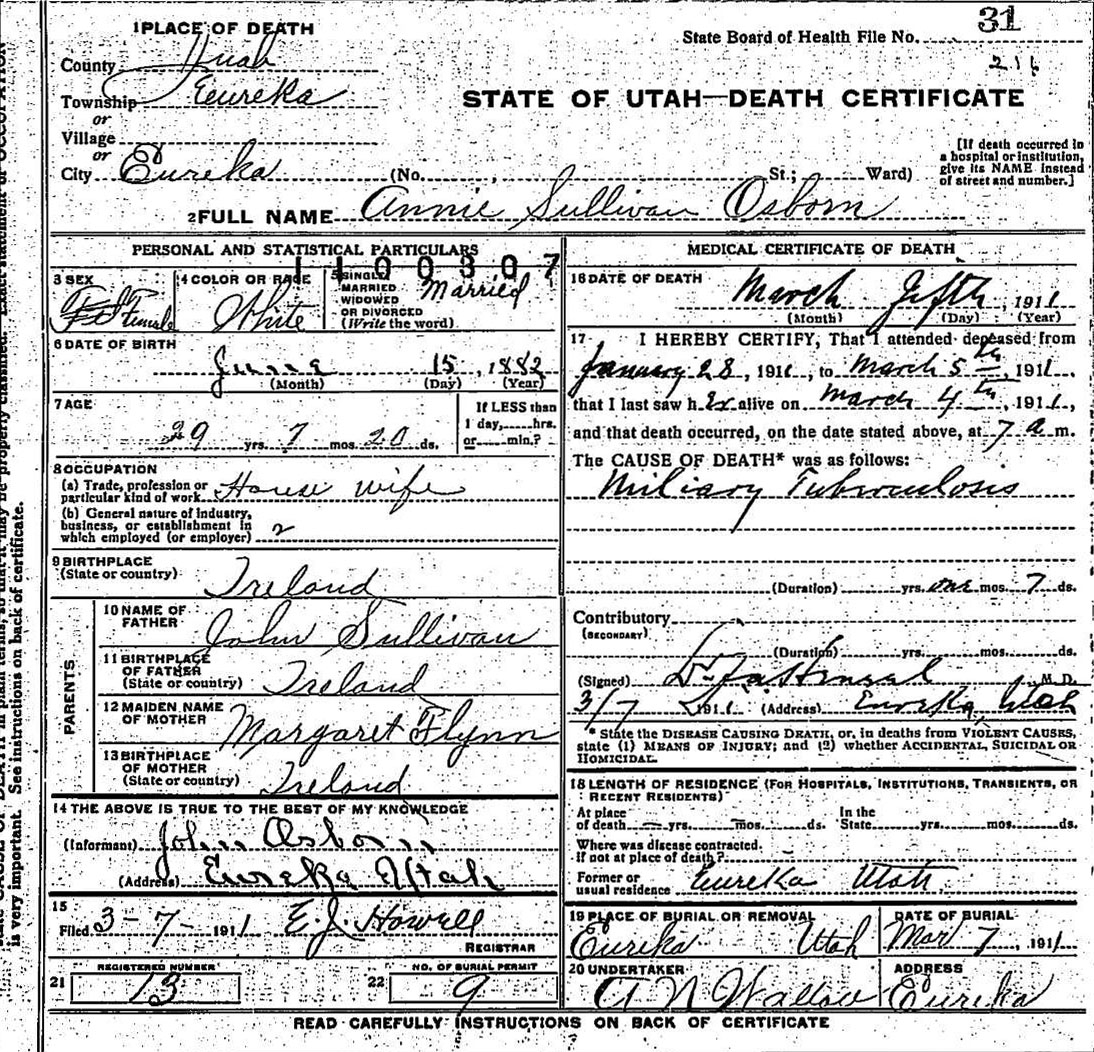 1 PLACE OF DEATH
State Board of Health File No. 31
County Juab
Township Eureka
or
STATE OF UTAH—DEATH CERTIFICATE
Village
or
City Eureka (No. , St.; Ward)
[If death occurred in
a hospital or institution,
give its NAME instead
of street and number.]
2 FULL NAME Annie Sullivan Osborn
PERSONAL AND STATISTICAL PARTICULARS
1100307
3 SEX
Female
4 COLOR OR RACE
White
5 SINGLE
MARRIED
WIDOWED
OR DIVORCED
(Write the word)
Married
6 DATE OF BIRTH
June 15, 1882
(Month) (Day) (Year)
7 AGE
29 yrs. 7 mos. 20 ds.
If LESS than
1 day, hrs.
or min.?
8 OCCUPATION
(a) Trade, profession or
particular kind of work House wife
(b) General nature of industry,
business, or establishment in
which employed (or employer)
9 BIRTHPLACE
(State or country) Ireland
PARENTS
10 NAME OF
FATHER
John Sullivan
11 BIRTHPLACE
OF FATHER
(State or country) Ireland
12 MAIDEN NAME
OF MOTHER
Margaret Flynn
13 BIRTHPLACE
OF MOTHER
(State or country) Ireland
14 THE ABOVE IS TRUE TO THE BEST OF MY KNOWLEDGE
(Informant) John Osborn
(Address) Eureka Utah
15
Filed 3-7-1911 E.J. Howell
REGISTRAR
21 REGISTERED NUMBER
13
22 NO. OF BURIAL PERMIT
9
MEDICAL CERTIFICATE OF DEATH
16 DATE OF DEATH
March Fifth, 1911
(Month) (Day) (Year)
17 I HEREBY CERTIFY, That I attended deceased from
January 28, 1911, to March 5th, 1911,
that I last saw her alive on March 4th, 1911,
and that death occurred, on the date stated above, at 7 a m.
The CAUSE OF DEATH* was as follows:
Miliary Tuberculosis
(Duration) yrs. one mos. 7 ds.
Contributory
(SECONDARY)
(Duration) yrs. mos. ds.
(Signed) M.D.
3/7 1911 (Address) Eureka, Utah
* State the DISEASE CAUSING DEATH, or, in deaths from VIOLENT CAUSES,
state (1) MEANS OF INJURY; and (2) whether ACCIDENTAL, SUICIDAL OR
HOMICIDAL.
18 LENGTH OF RESIDENCE (FOR HOSPITALS, INSTITUTIONS, TRANSIENTS, OR
RECENT RESIDENTS)
At place
of death yrs. mos. ds.
In the
State yrs. mos. ds.
Where was disease contracted.
If not at place of death?
Former or
usual residence Eureka Utah
19 PLACE OF BURIAL OR REMOVAL
Eureka Utah
DATE OF BURIAL
Mar 7, 1911
20 UNDERTAKER
ADDRESS
Eureka
READ CAREFULLY INSTRUCTIONS ON BACK OF CERTIFICATE
is very important. See instructions on back of certificate.